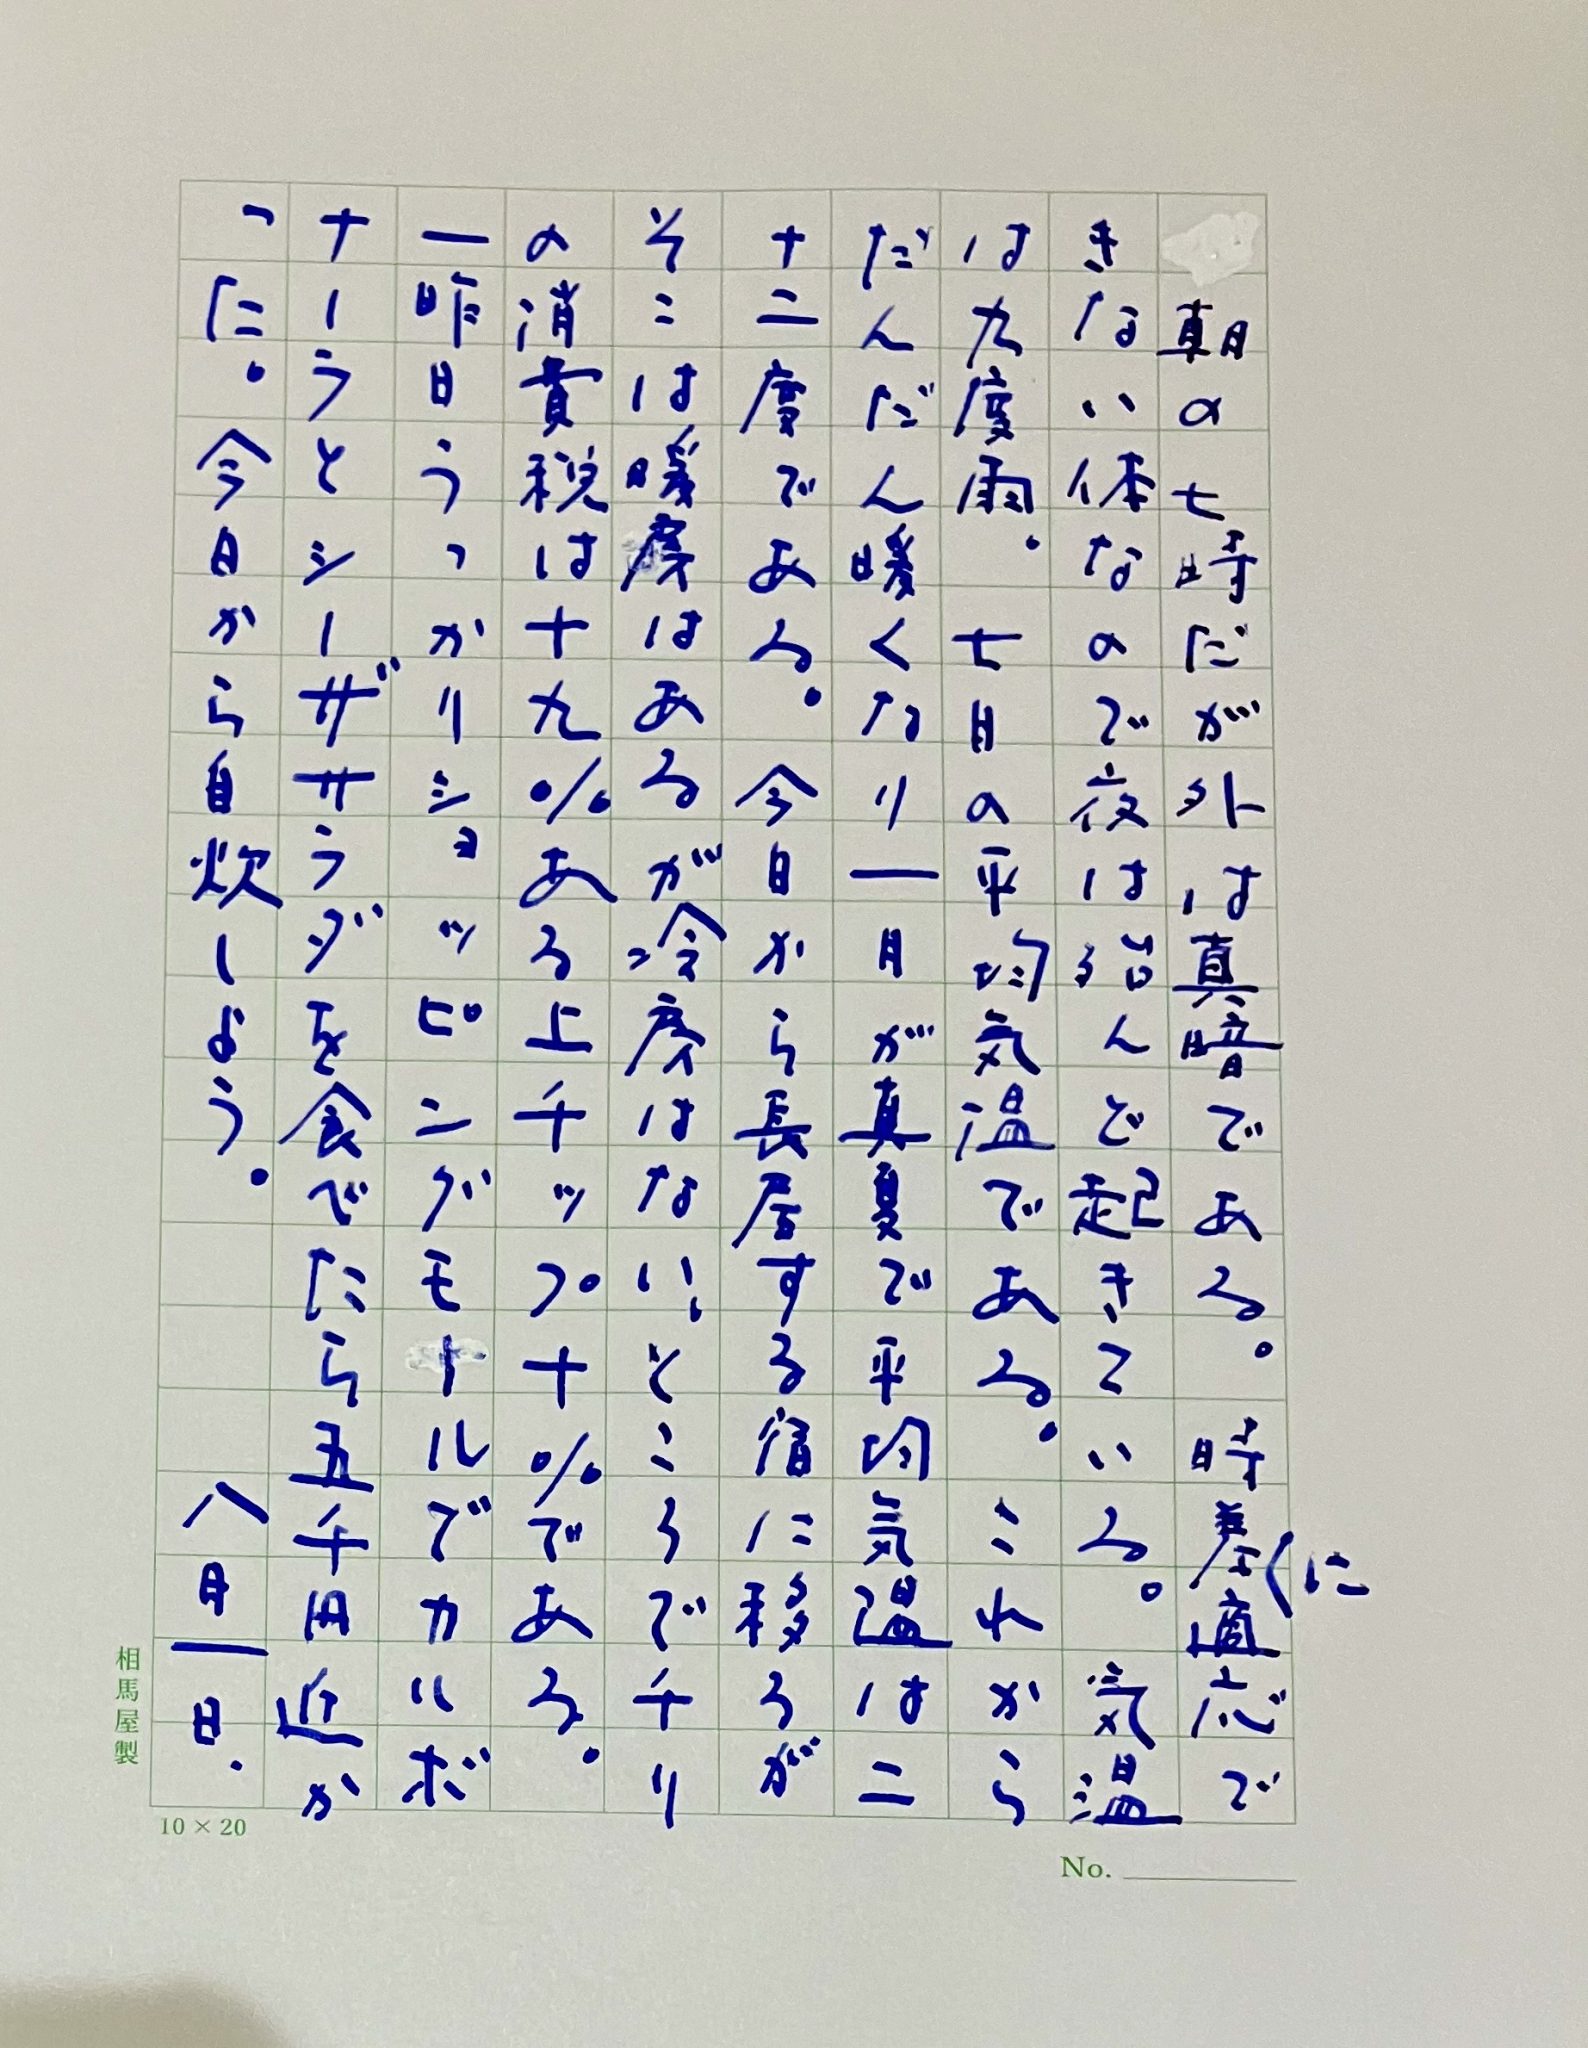 朝の七時だが外は真暗である。時差に適応で
きない体なので夜は殆んど起きている。気温
は九度雨。七月の平均気温である。これから
だんだん暖くなり一月が真夏で平均気温は二
十二度である。今日から長居する宿に移るが
そこは暖房はあるが冷房はない。ところでチリ
の消費税は十九%ある上チップ十%である。
一昨日うっかりショッピングモールでカルボ
ナーラとシーザーサラダを食べたら五千円近か
った。今日から自炊しよう。
八月一日.
相馬屋製
10×20
No.